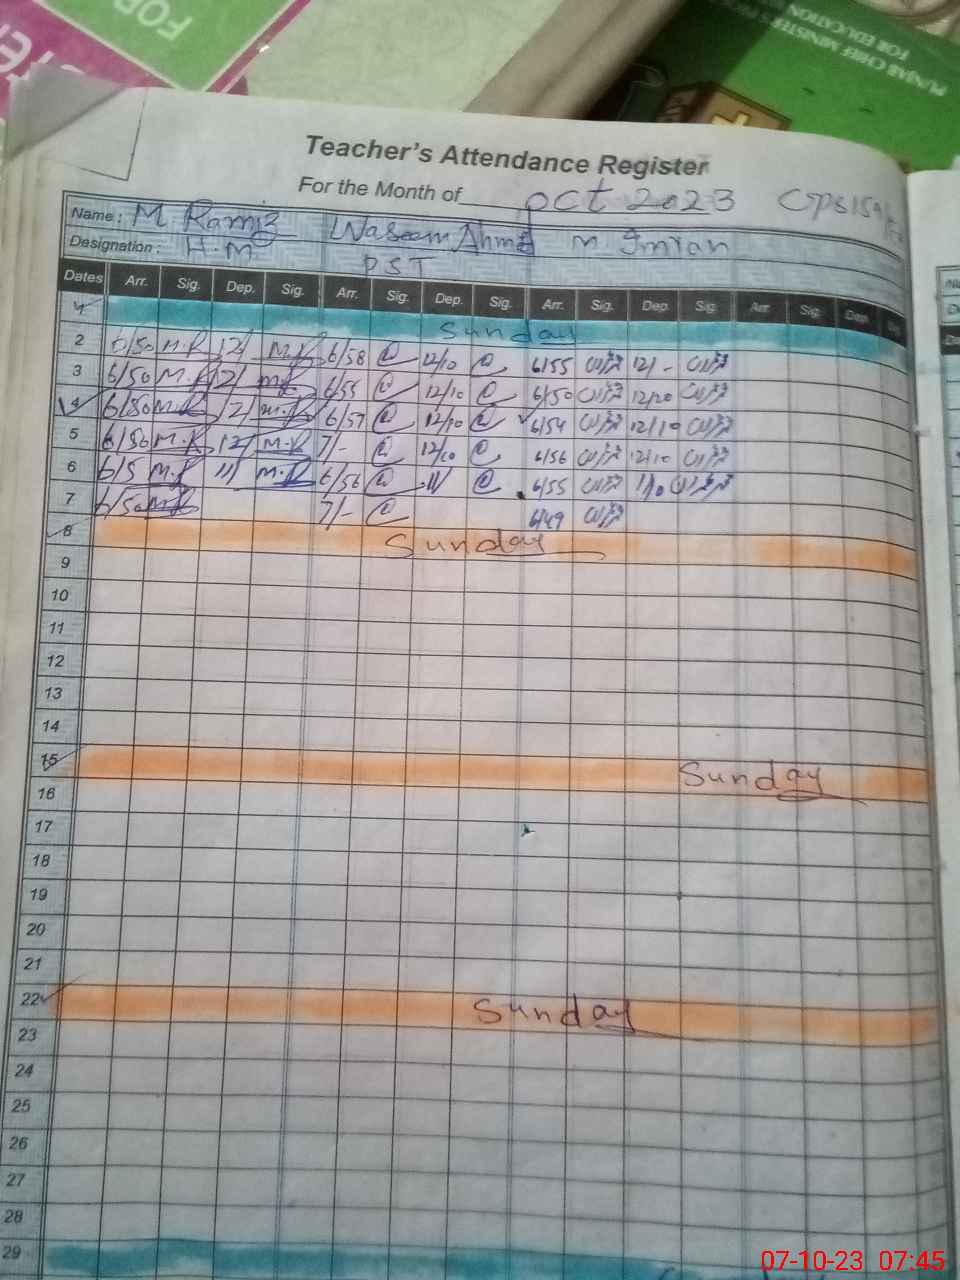 FOR
PUNJAB CHIEF MINISTER'S
FOR EDUCATION
Teacher's Attendance Register
For the Month of Oct 2023
Name: M Ramiz Waseem Ahmd M Imran
Designation: H.M PST
Dates Arr. Sig. Dep. Sig. Arr. Sig. Dep. Sig. Arr. Sig. Dep. Sig. Arr. Sig. Dep.
1 Sunday
2 6/50 M.R 12/ M.R 6/58 12/10 6/55 12/-
3 6/50 M.R 12/ M.R 6/55 12/10 6/50 12/20
4 6/50 M.R 12/ M.R 6/57 12/10 6/54 12/10
5 6/50 M.R 12/ M.R 7/- 12/10 6/56 12/10
6 6/5 M.R 11/ M.R 6/56 11/ 6/55 11/0
7 6/50 M.R 7/- 6/49
8 Sunday
9
10
11
12
13
14
15 Sunday
16
17
18
19
20
21
22 Sunday
23
24
25
26
27
28
29
07-10-23 07:45